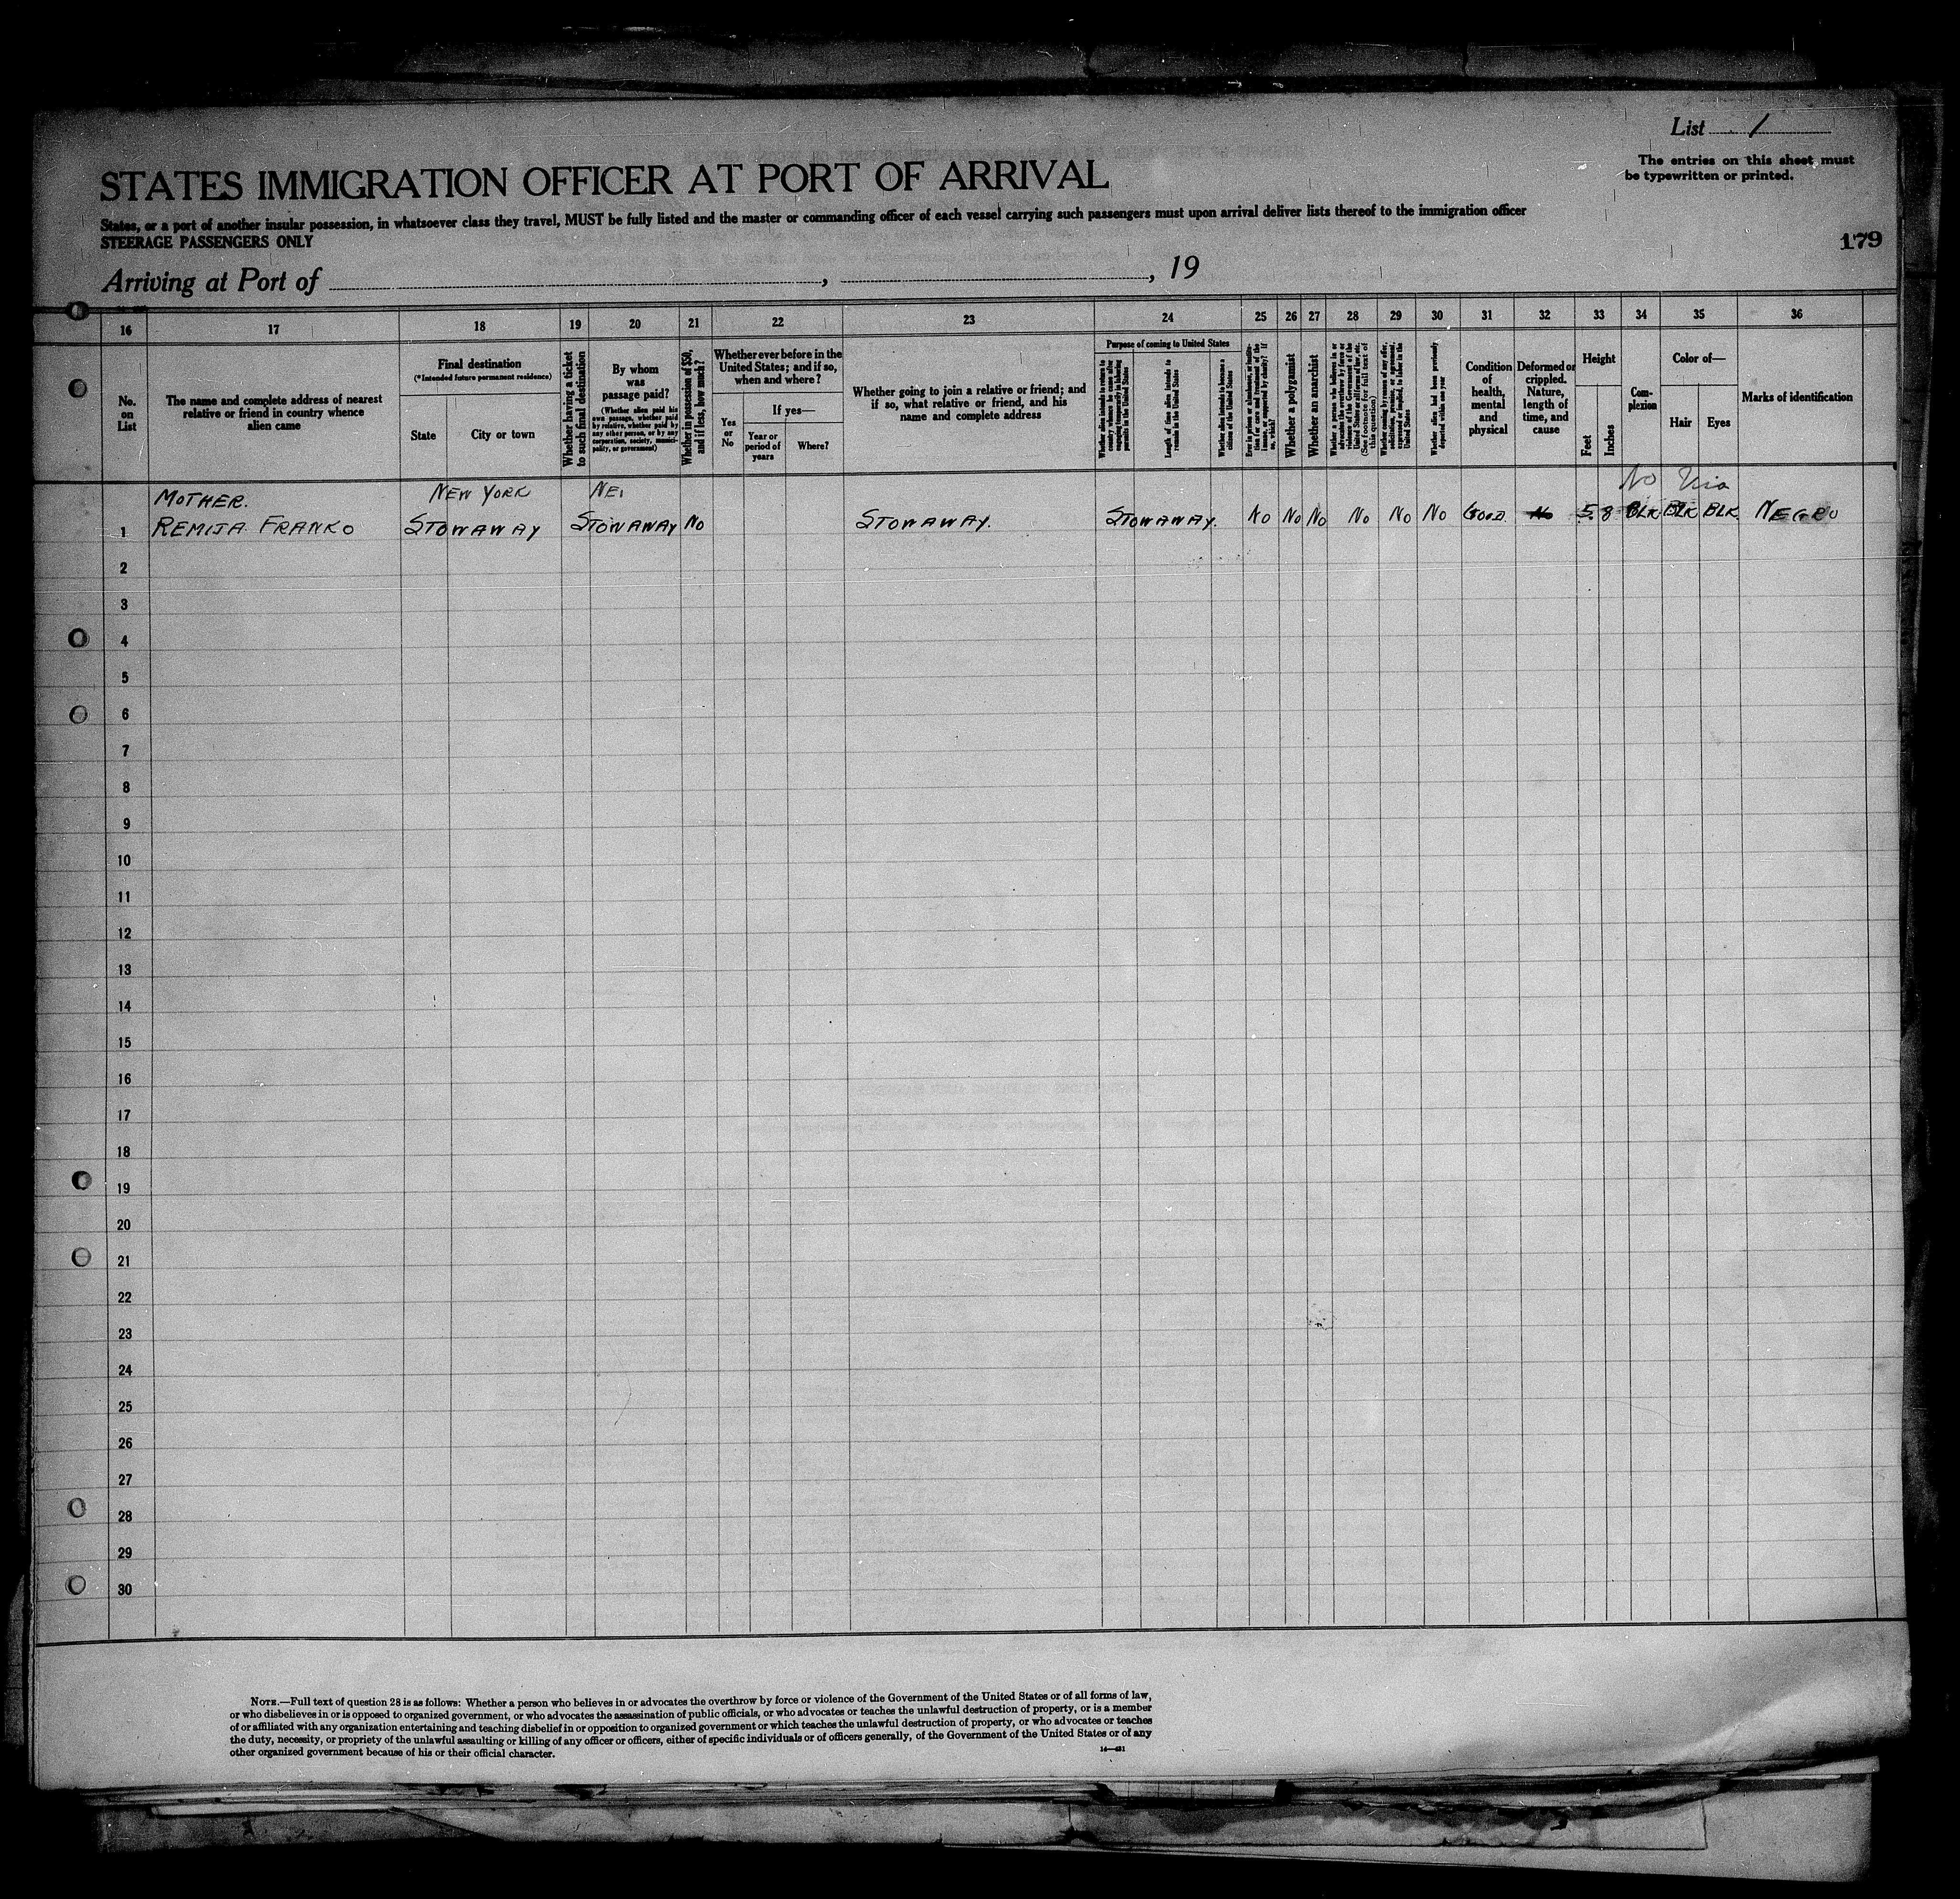 List 1
The entries on this sheet must
be typewritten or printed.
STATES IMMIGRATION OFFICER AT PORT OF ARRIVAL
States, or a port of another insular possession, in whatsoever class they travel, MUST be fully listed and the master or commanding officer of each vessel carrying such passengers must upon arrival deliver lists thereof to the immigration officer
STEERAGE PASSENGERS ONLY
179
Arriving at Port of , , 19
16 17 18 19 20 21 22 23 24 25 26 27 28 29 30 31 32 33 34 35 36
No.
on
List
The name and complete address of nearest
relative or friend in country whence
alien came
Final destination
(*Intended future permanent residence)
State
City or town
Whether having a ticket
to such final destination
By whom
was
passage paid?
(Whether alien paid his
own passage, whether paid
by relative, whether paid by
any other person, or by any
corporation, society, munici-
pality, or government)
Whether in possession of $50,
and if less, how much?
Whether ever before in the
United States; and if so,
when and where?
Yes
or
No
If yes—
Year or
period of
years
Where?
Whether going to join a relative or friend; and
if so, what relative or friend, and his
name and complete address
Purpose of coming to United States
Whether alien intends to return to
country whence he came after
engaging temporarily in laboring
pursuits in the United States
Length of time alien intends to
remain in the United States
Whether alien intends to become a
citizen of the United States
Whether a polygamist
Whether an anarchist
Whether a person who believes in or
advocates the overthrow by force or
violence of the Government of the
United States or all forms of law, etc.
(See footnote for full text of
this question)
Whether coming by reason of any offer,
solicitation, promise, or agreement,
expressed or implied, to labor in the
United States
Whether alien had been previously
deported within one year
Condition
of
health,
mental
and
physical
Deformed or
crippled.
Nature,
length of
time, and
cause
Height
Feet
Inches
Com-
plexion
Color of—
Hair
Eyes
Marks of identification
MOTHER. NEW YORK NEW No Visa
1 REMISA FRANKO STOWAWAY STOWAWAY No STOWAWAY. STOWAWAY. No No No No No No GOOD. No 5 8 BLK BLK BLK. NEGRO
2
3
4
5
6
7
8
9
10
11
12
13
14
15
16
17
18
19
20
21
22
23
24
25
26
27
28
29
30
NOTE.—Full text of question 28 is as follows: Whether a person who believes in or advocates the overthrow by force or violence of the Government of the United States or of all forms of law,
or who disbelieves in or is opposed to organized government, or who advocates the assassination of public officials, or who advocates or teaches the unlawful destruction of property, or is a member
of or affiliated with any organization entertaining and teaching disbelief in or opposition to organized government or which teaches the unlawful destruction of property, or who advocates or teaches
the duty, necessity, or propriety of the unlawful assaulting or killing of any officer or officers, either of specific individuals or of officers generally, of the Government of the United States or of any
other organized government because of his or their official character.
14—431